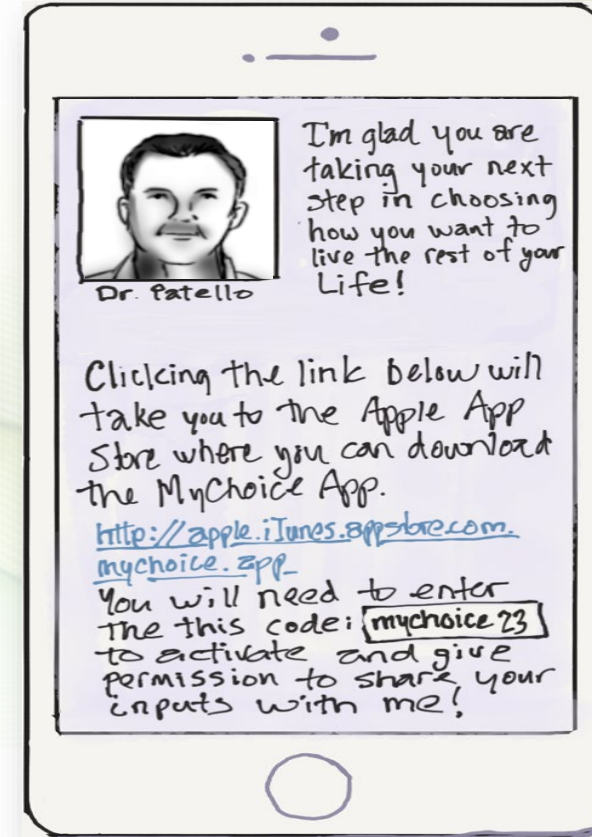 I'm glad you are
taking your next
step in choosing
how you want to
live the rest of your
Life!
Dr. Patello
Clicking the link below will
take you to the Apple App
Store where you can download
the MyChoice App.
http://apple.iTunes.appstore.com.
mychoice.app
You will need to enter
the this code: mychoice 23
to activate and give
permission to share your
inputs with me!